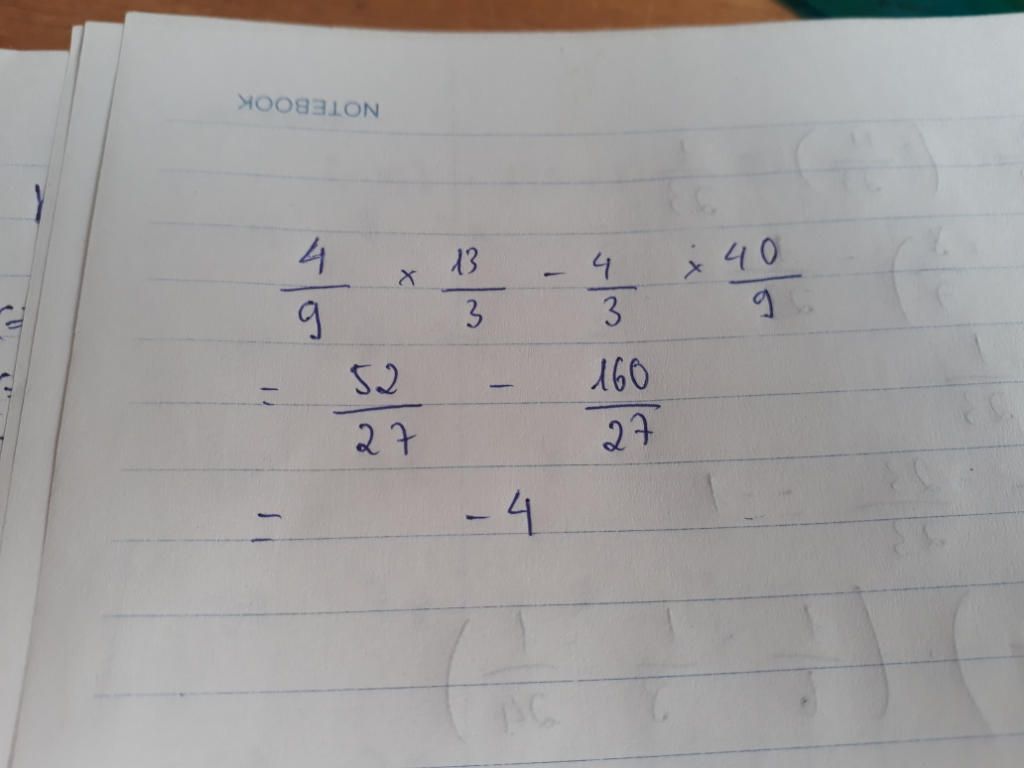 NOTEBOOK
4/9 × 13/3 - 4/3 × 40/9
= 52/27 - 160/27
= - 4